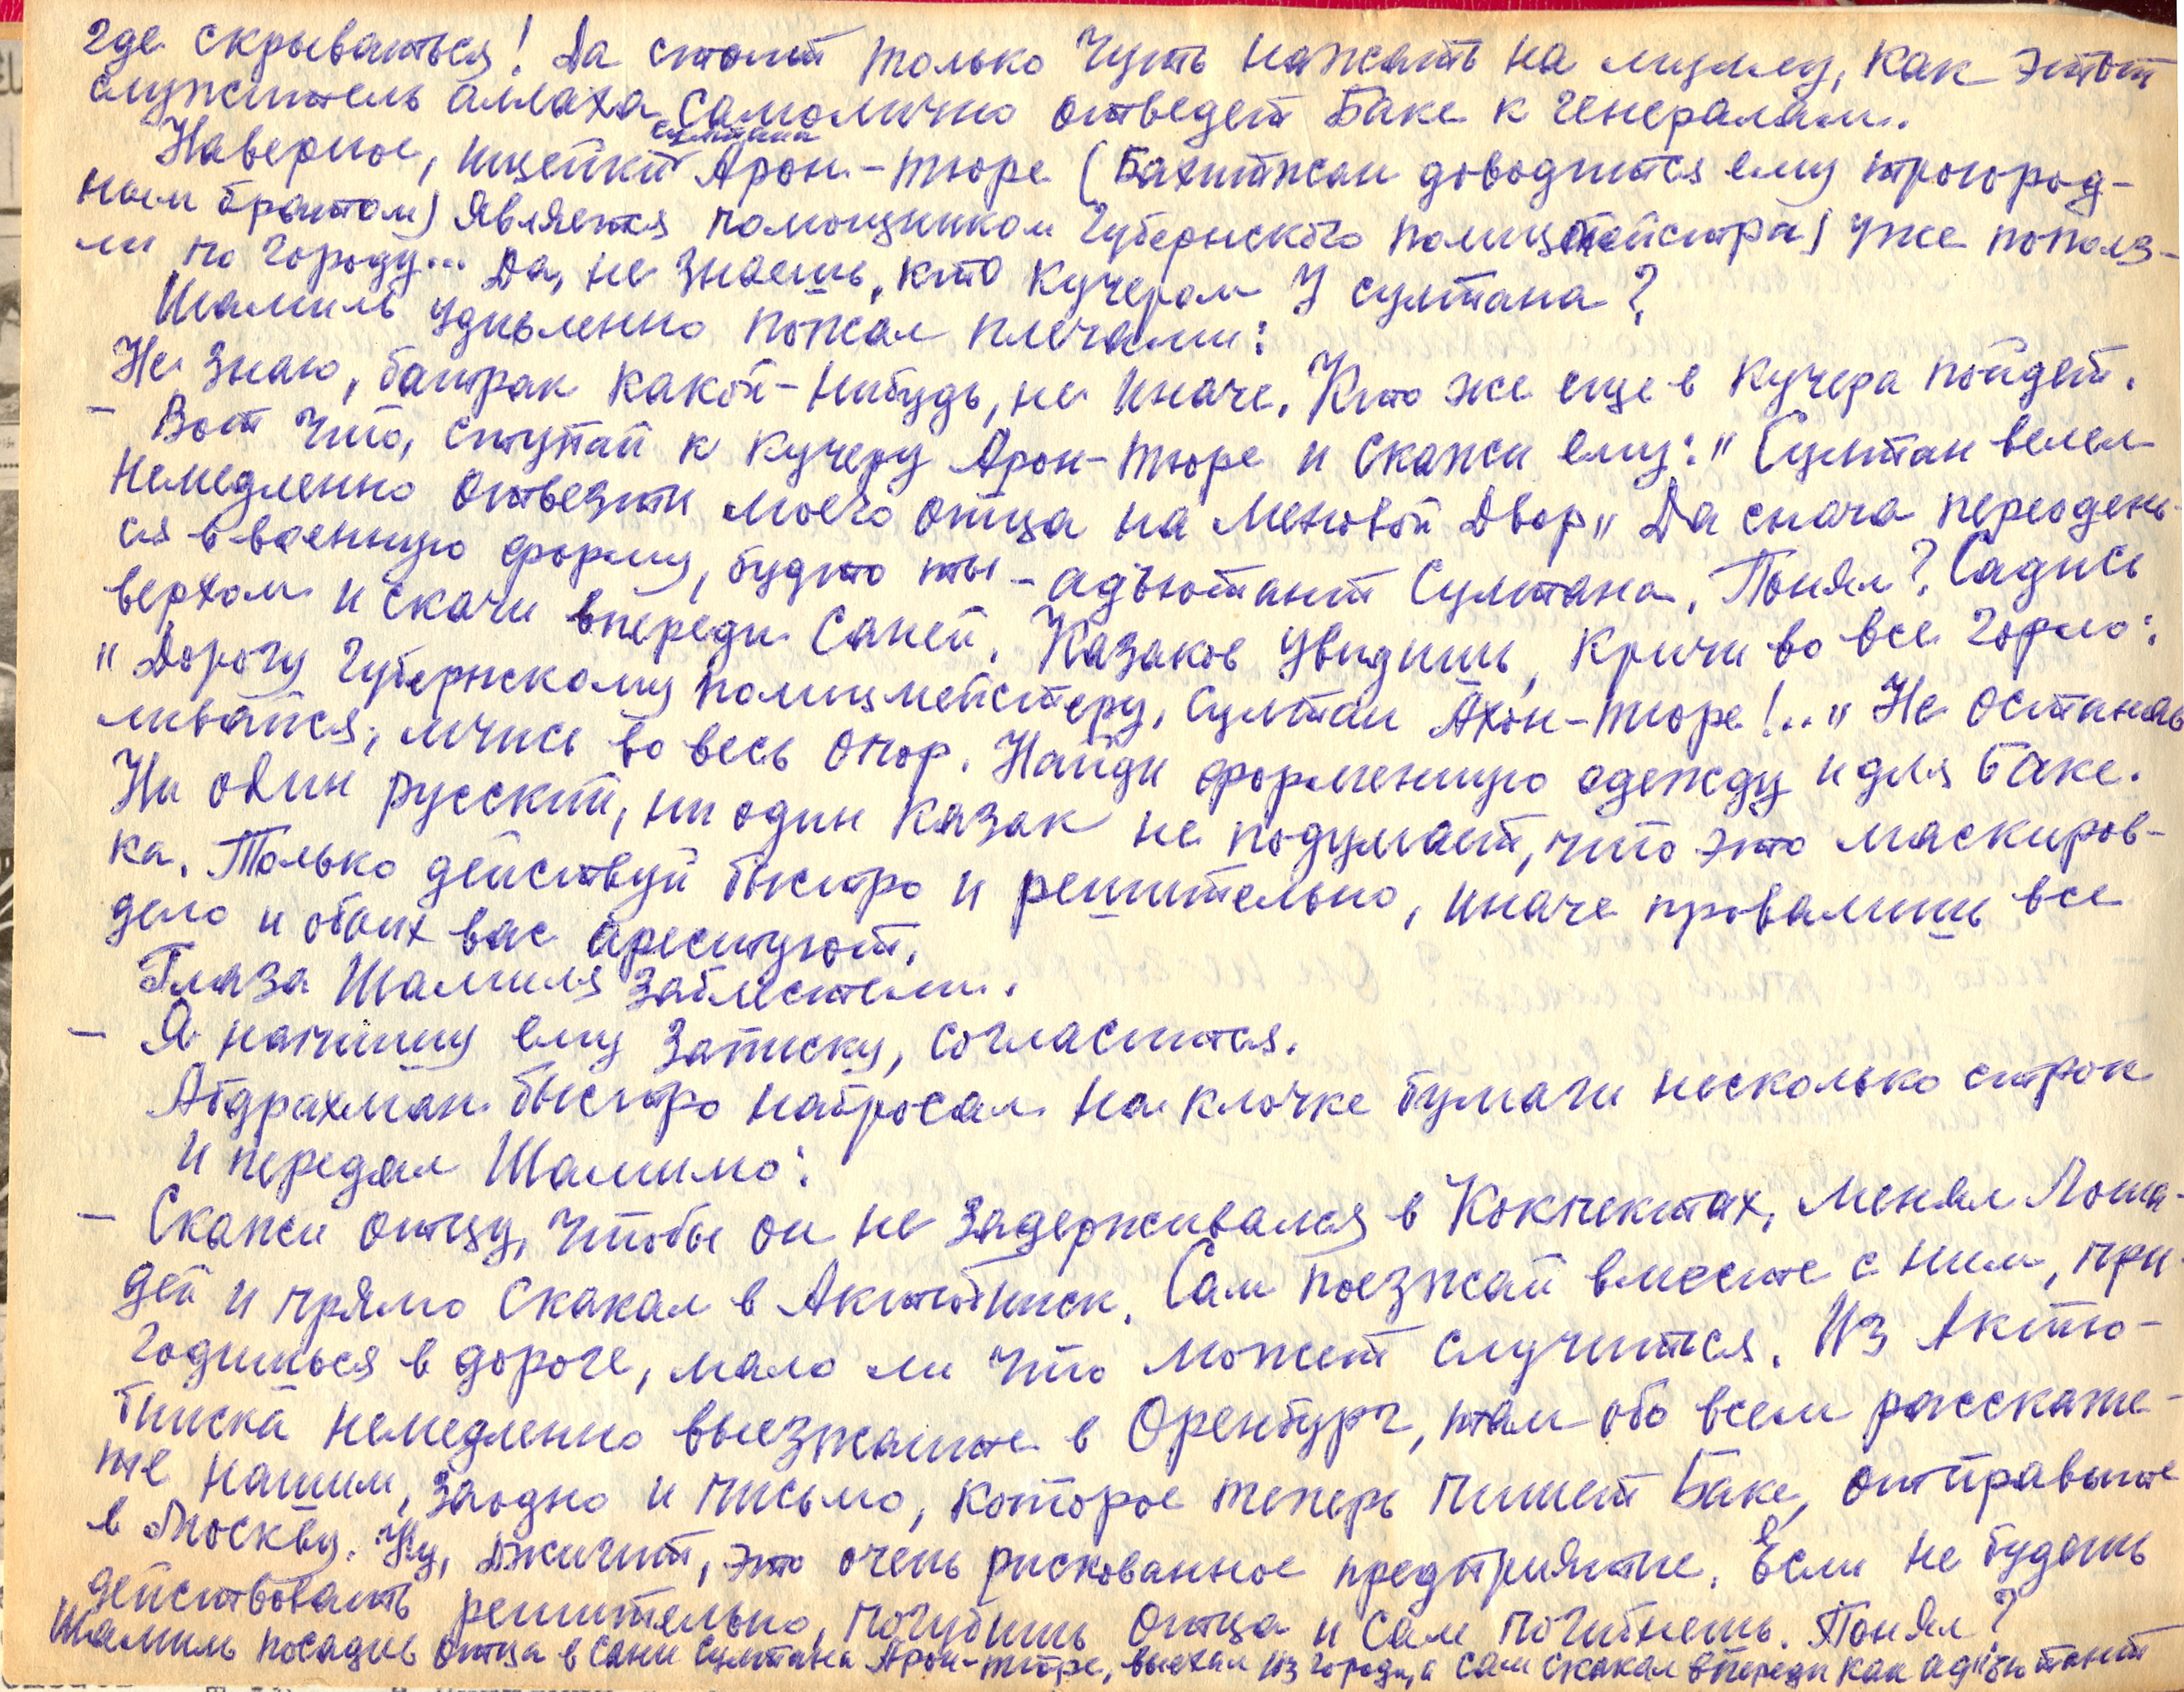 где скрываться! Да стоит только чуть нажать на муллу, как этот
служитель аллаха самолично отведет Баке к генералам.
султана
Наверное, ищейки Арон-тюре (Бахитжан доводится ему троюрод-
ным братом) является помощником губернского полицмейстра) уже пополз-
ли по городу... Да, не знаешь, кто кучером у султана?
Шамиль удивленно пожал плечами:
Не знаю, батрак какой-нибудь, не иначе. Кто же еще в кучера пойдет.
- Вот что, ступай к кучеру Арон-тюре и скажи ему: "Султан велел
немедленно отвезти моего отца на Меновой Двор" Да снача переодень-
ся в военную форму, будто ты - адъютант Султана. Понял? Садись
верхом и скачи впереди саней. Казаков увидишь, кричи во все горло:
"Дорогу губернскому полицмейстеру, Султан Ахон-тюре!.." Не останав
ливайся, мчись во весь опор. Найди форменную одежду и для Баке.
Ни один русский, ни один казак не подумает, что это маскиров-
ка. Только действуй быстро и решительно, иначе провалишь все
дело и обоих вас арестуют.
Глаза Шамиля заблестели.
- Я напишу ему записку, согласится.
Абдрахман быстро набросал на клочке бумаги несколько строк
и передал Шамилю:
- Скажи отцу, чтобы он не задерживался в Кокпектах, менял лоша-
дей и прямо скакал в Актюбинск. Сам поезжай вместе с ним, при-
годишься в дороге, мало ли что может случится. Из Актю-
бинска немедленно выезжайте в Оренбург, там обо всем расскажи-
те нашим, заодно и письмо, которое теперь пишет Баке, отправьте
в Москву. Ну, джигит, это очень рискованное предприятие. Если не будешь
действовать решительно, погубишь отца и сам погибнешь. Понял?
Шамиль посадив отца в сани султана Арон-тюре, выехал из города, а сам скакал впереди как адъютант